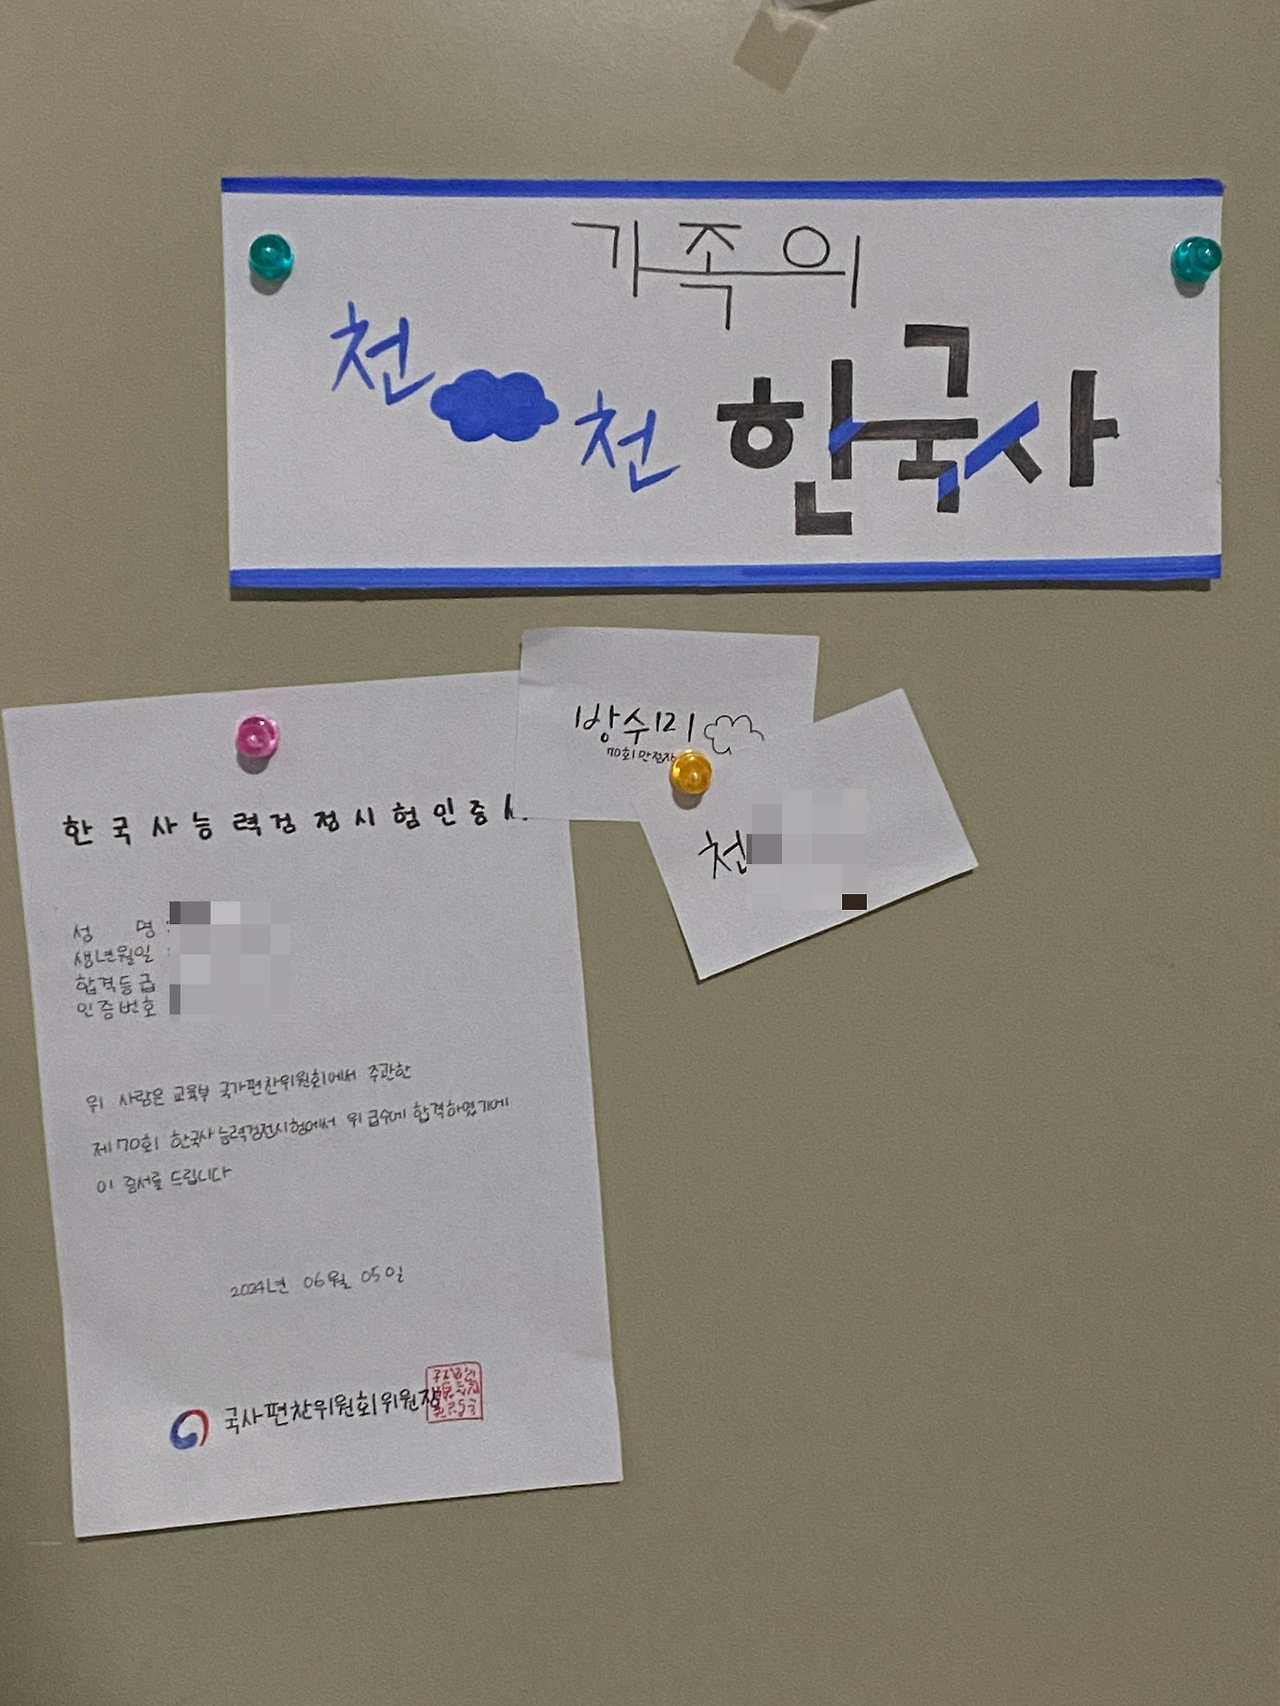 가족의
천천 한국사
방수121
70회 만점자
천
한국사능력검정시험인증서
성 명 :
생년월일 :
합격등급
인증번호
위 사람은 교육부 국가편찬위원회에서 주관한
제70회 한국사능력검전시험에서 위 급수에 합격하였기에
이 증서를 드립니다
2024년 06월 05일
국사편찬위원회위원장